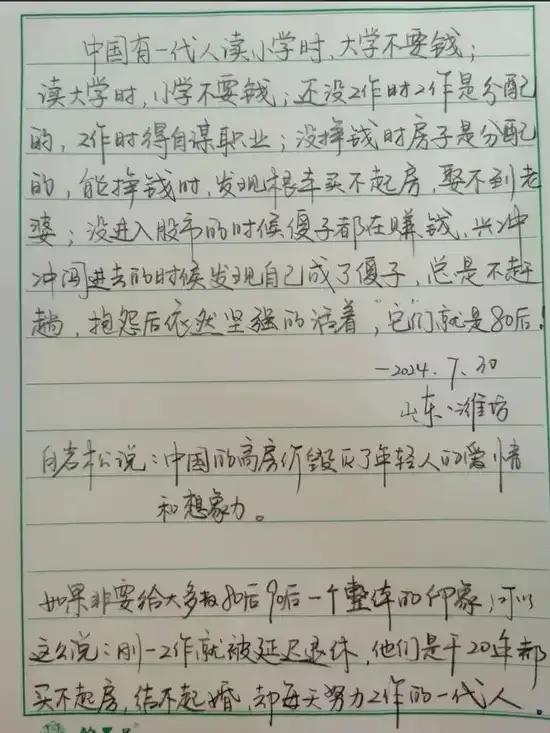 中国有一代人读小学时,大学不要钱;
读大学时,小学不要钱;还没工作时工作是分配
的,工作时得自谋职业;没挣钱时房子是分配
的,能挣钱时,发现根本买不起房,娶不到老
婆;没进入股市的时候傻子都在赚钱,兴冲
冲闯进去的时候发现自己成了傻子,总是不赶
趟,抱怨后依然坚强的活着,它们就是80后!
-2024.7.30
山东·潍坊
白岩松说:中国的高房价毁灭了年轻人的爱情
和想象力。
如果非要给大多数80后90后一个整体的印象,可以
这么说:刚一工作就被延迟退休,他们是干20年都
买不起房,结不起婚,却每天努力工作的一代人。